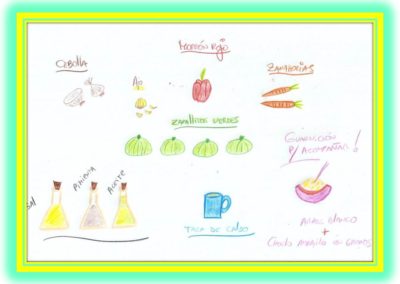 MORRÓN ROJO
CEBOLLA
AJO
ZANAHORIAS
ZAPALLITOS VERDES
GUARNICIÓN
P/ ACOMPAÑAR!
SAL
PIMIENTA
ACEITE
TAZA DE CALDO
ARROZ BLANCO
+
CHOCLO AMARILLO EN GRANOS